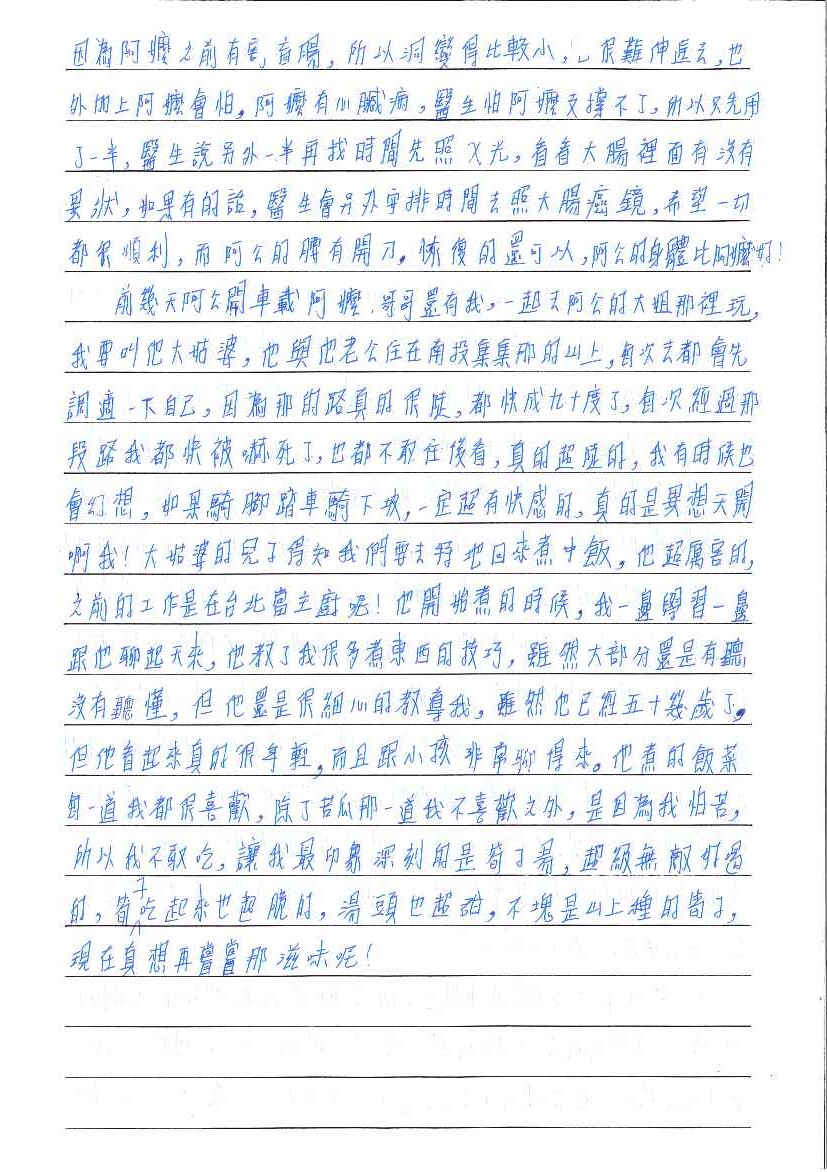 因為阿嬤之前有割盲腸，所以洞變得比較小，很難伸進去，也
外加上阿嬤會怕，阿嬤有心臟病，醫生怕阿嬤支撐不了，所以只先用
了一半，醫生說另外一半再找時間先照X光，看看大腸裡面有沒有
異狀，如果有的話，醫生會另外安排時間去照大腸癌鏡，希望一切
都很順利，而阿公的腰有開刀。恢復的還可以，阿公的身體比阿嬤好！
前幾天阿公開車載阿嬤、哥哥還有我，一起去阿公的大姐那裡玩，
我要叫他大姑婆，他與他老公住在南投集集那的山上，每次去都會先
調適一下自己，因為那的路真的很陡，都快成九十度了，每次經過那
段路我都快被嚇死了，也都不敢往後看，真的超陡的，我有時候也
會幻想，如果騎腳踏車騎下坡，一定超有快感的，真的是異想天開
啊我！大姑婆的兒子得知我們要去特地回來煮中飯，他超厲害的，
之前的工作是在台北當主廚呢！他開始煮的時候，我一邊學習一邊
跟他聊起天來，他教了我很多煮東西的技巧，雖然大部分還是有聽
沒有聽懂，但他還是很細心的教導我，雖然他已經五十幾歲了。
但他看起來真的很年輕，而且跟小孩非常聊得來。他煮的飯菜
每一道我都很喜歡，除了苦瓜那一道我不喜歡之外，是因為我怕苦，
所以我不敢吃，讓我最印象深刻的是筍子湯，超級無敵好喝
的，筍子吃起來也超脆的，湯頭也超甜，不塊是山上種的筍子，
現在真想再嘗嘗那滋味呢！